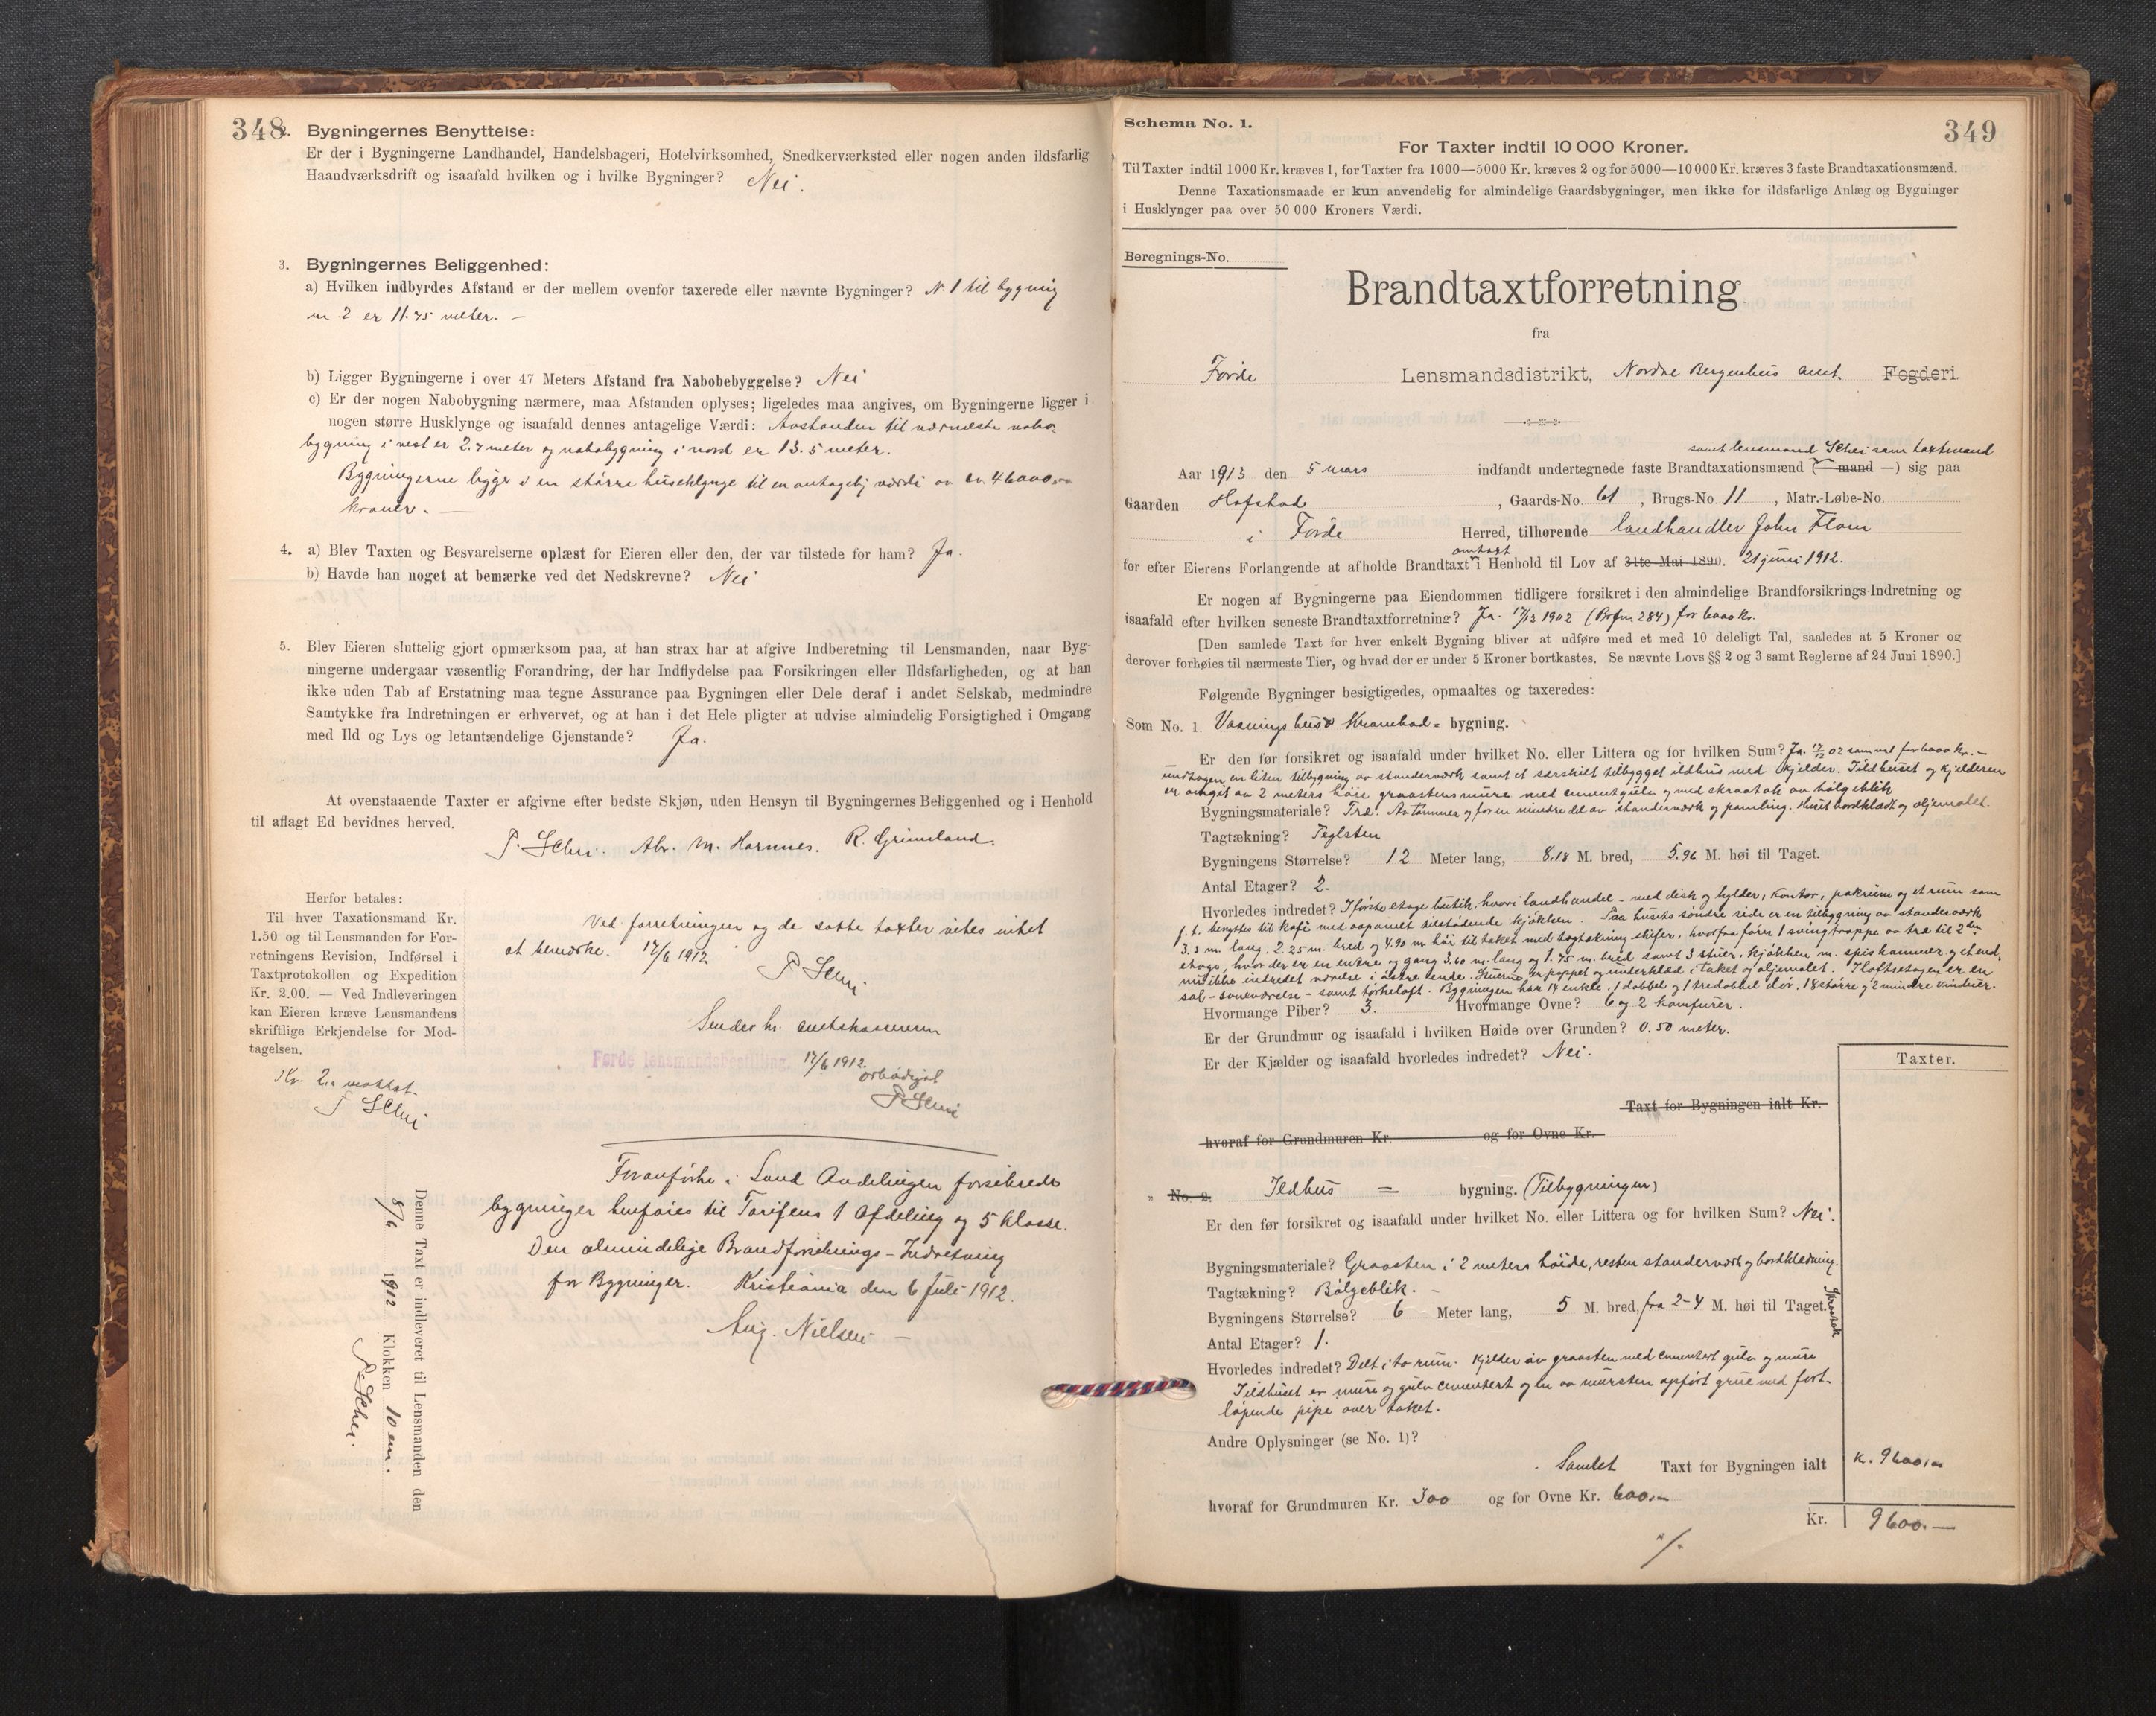 348
2. Bygningernes Benyttelse:
Er der i Bygningerne Landhandel, Handelsbageri, Hotelvirksomhed, Snedkerværksted eller nogen anden ildsfarlig
Haandværksdrift og isaafald hvilken og i hvilke Bygninger? Nei.
3. Bygningernes Beliggenhed:
a) Hvilken indbyrdes Afstand er der mellem ovenfor taxerede eller nævnte Bygninger? N. 1 til bygning
nr 2 er 11.75 meter. —
b) Ligger Bygningerne i over 47 Meters Afstand fra Nabobebyggelse? Nei
c) Er der nogen Nabobygning nærmere, maa Afstanden oplyses; ligeledes maa angives, om Bygningerne ligger i
nogen større Husklynge og isaafald dennes antagelige Værdi: Avstanden til nærmeste nabo-
bygning i vest er 2.7 meter og nabobygning i nord er 13.5 meter.
Bygningerne ligger i en større huseklynge til en antagelig værdi av ca. 46000,00
kroner. —
4. a) Blev Taxten og Besvarelserne oplæst for Eieren eller den, der var tilstede for ham? Ja.
b) Havde han noget at bemærke ved det Nedskrevne? Nei
5. Blev Eieren sluttelig gjort opmærksom paa, at han strax har at afgive Indberetning til Lensmanden, naar Byg-
ningerne undergaar væsentlig Forandring, der har Indflydelse paa Forsikringen eller Ildsfarligheden, og at han
ikke uden Tab af Erstatning maa tegne Assurance paa Bygningen eller Dele deraf i andet Selskab, medmindre
Samtykke fra Indretningen er erhvervet, og at han i det Hele pligter at udvise almindelig Forsigtighed i Omgang
med Ild og Lys og letantændelige Gjenstande? Ja.
At ovenstaaende Taxter er afgivne efter bedste Skjøn, uden Hensyn til Bygningernes Beliggenhed og i Henhold
til aflagt Ed bevidnes herved.
P. Schei. Abr. M. Hornnes. R. Grimeland.
Herfor betales:
Til hver Taxationsmand Kr.
1.50 og til Lensmanden for For-
retningens Revision, Indførsel i
Taxtprotokollen og Expedition
Kr. 2.00. — Ved Indleveringen
kan Eieren kræve Lensmandens
skriftlige Erkjendelse for Mod-
tagelsen.
Kr. 2.- mottat.
P Schei
Ved forretningen og de satte taxter vites intet
at bemerke. 17/6 1912
P Schei
Sendes hr. amtskassereren
Førde lensmandsbestilling, 17/6 1912.
ærbødigst
P Schei
Foranførte i Land Avdelingen forsikrede
bygninger henføres til Tarifens 1 Afdeling og 5 Klasse.
Den almindelige Brandforsikrings-Indretning
for Bygninger. Kristiania den 6 Juli 1912.
Aug. Nielsen —
Denne Taxt er indleveret til Lensmanden den
8/6 1912 Klokken 10 em.
P. Schei.
349
Schema No. 1.
For Taxter indtil 10 000 Kroner.
Til Taxter indtil 1000 Kr. kræves 1, for Taxter fra 1000—5000 Kr. kræves 2 og for 5000—10 000 Kr. kræves 3 faste Brandtaxationsmænd.
Denne Taxationsmaade er kun anvendelig for almindelige Gaardsbygninger, men ikke for ildsfarlige Anlæg og Bygninger
i Husklynger paa over 50 000 Kroners Værdi.
Beregnings-No.
Brandtaxtforretning
fra
Førde Lensmandsdistrikt, Nordre Bergenhus amt. Fogderi.
samt lensmand Schei som taxtmand
Aar 1913 den 5 mars indfandt undertegnede faste Brandtaxationsmænd (— mand —) sig paa
Gaarden Hafstad, Gaards-No. 61, Brugs-No. 11, Matr.-Løbe-No.
i Førde Herred, tilhørende landhandler John Flom
omtaxt
for efter Eierens Forlangende at afholde Brandtaxt i Henhold til Lov af 31te Mai 1890. 21 juni 1912.
Er nogen af Bygningerne paa Eiendommen tidligere forsikret i den almindelige Brandforsikrings-Indretning og
isaafald efter hvilken seneste Brandtaxtforretning? Ja. 17/12 1902 (Brfn. 284) for 6000 kr.
[Den samlede Taxt for hver enkelt Bygning bliver at udføre med et med 10 deleligt Tal, saaledes at 5 Kroner og
derover forhøies til nærmeste Tier, og hvad der er under 5 Kroner bortkastes. Se nævnte Lovs §§ 2 og 3 samt Reglerne af 24 Juni 1890.]
Følgende Bygninger besigtigedes, opmaaltes og taxeredes:
Som No. 1. Vaaningshus & Krambod = bygning.
Er den før forsikret og isaafald under hvilket No. eller Littera og for hvilken Sum? Ja. 17/12 02 som nr 1 for 6000 kr. —
undtagen en liten tilbygning av standerværk samt et særskilt tilbygget ildhus med kjelder. Ildhuset og kjelderen
er omgit av 2 meters høie graastensmure med cementgulv og med skraatak av bølgeblik
Bygningsmateriale? Træ. Av tømmer og for en mindre del av standerværk og paneling. Huset bordklædt og oljemalet.
Tagtækning? Teglsten
Bygningens Størrelse? 12 Meter lang, 8,18 M. bred, 5,96 M. høi til Taget.
Antal Etager? 2.
Hvorledes indredet? I første etage butik, hvori landhandel – med disk og hylder, kontor, pakrum og et rum som
f. t. benyttes til kafé med avpanelt tilstødende kjøkken. Paa husets søndre side er en tilbygning av standerværk
3.3 m. lang, 2.25 m. bred og 4.90 m høi til taket med tagtækning skifer, hvorfra fører 1 svingtrappe av træ til 2den
etage, hvor der er en entre og gang 3.60 m. lang og 1.75 m. bred samt 3 stuer, kjøkken m. spiskammer og et end-
nu ikke indredet værelse i østre ende. Stuerne er pappet og underklæd i taket og oljemalet. I loftsetagen er en
sal – soveværelse – samt tørkeloft. Bygningen har 14 enkle, 1 dobbel og 1 tredobbel dør, 18 større og 2 mindre vinduer.
Hvormange Piber? 3. Hvormange Ovne? 6 og 2 komfurer.
Er der Grundmur og isaafald i hvilken Høide over Grunden? 0.50 meter.
Er der Kjælder og isaafald hvorledes indredet? Nei.
Taxter.
Taxt for Bygningen ialt Kr.
hvoraf for Grundmuren Kr. og for Ovne Kr.
" No. 2. Ildhus = bygning. (Tilbygningen)
Er den før forsikret og isaafald under hvilket No. eller Littera og for hvilken Sum? Nei.
Bygningsmateriale? Graasten i 2 meters høide, resten standerværk og bordklædning.
Tagtækning? Bølgeblik. —
Bygningens Størrelse? 6 Meter lang, 5 M. bred, fra 2–4 M. høi til Taget. Skraatak
Antal Etager? 1.
Hvorledes indredet? Delt i to rum. Kjelder av graasten med cementert gulv og mure
I ildhuset er mure og gulv cementert og en av mursten opført grue med fort-
løpende pipe over taket.
Andre Oplysninger (se No. 1)?
Samlet Taxt for Bygningen ialt K. 9600,00
hvoraf for Grundmuren Kr. 300 og for Ovne Kr. 600.—
Kr. 9600.—